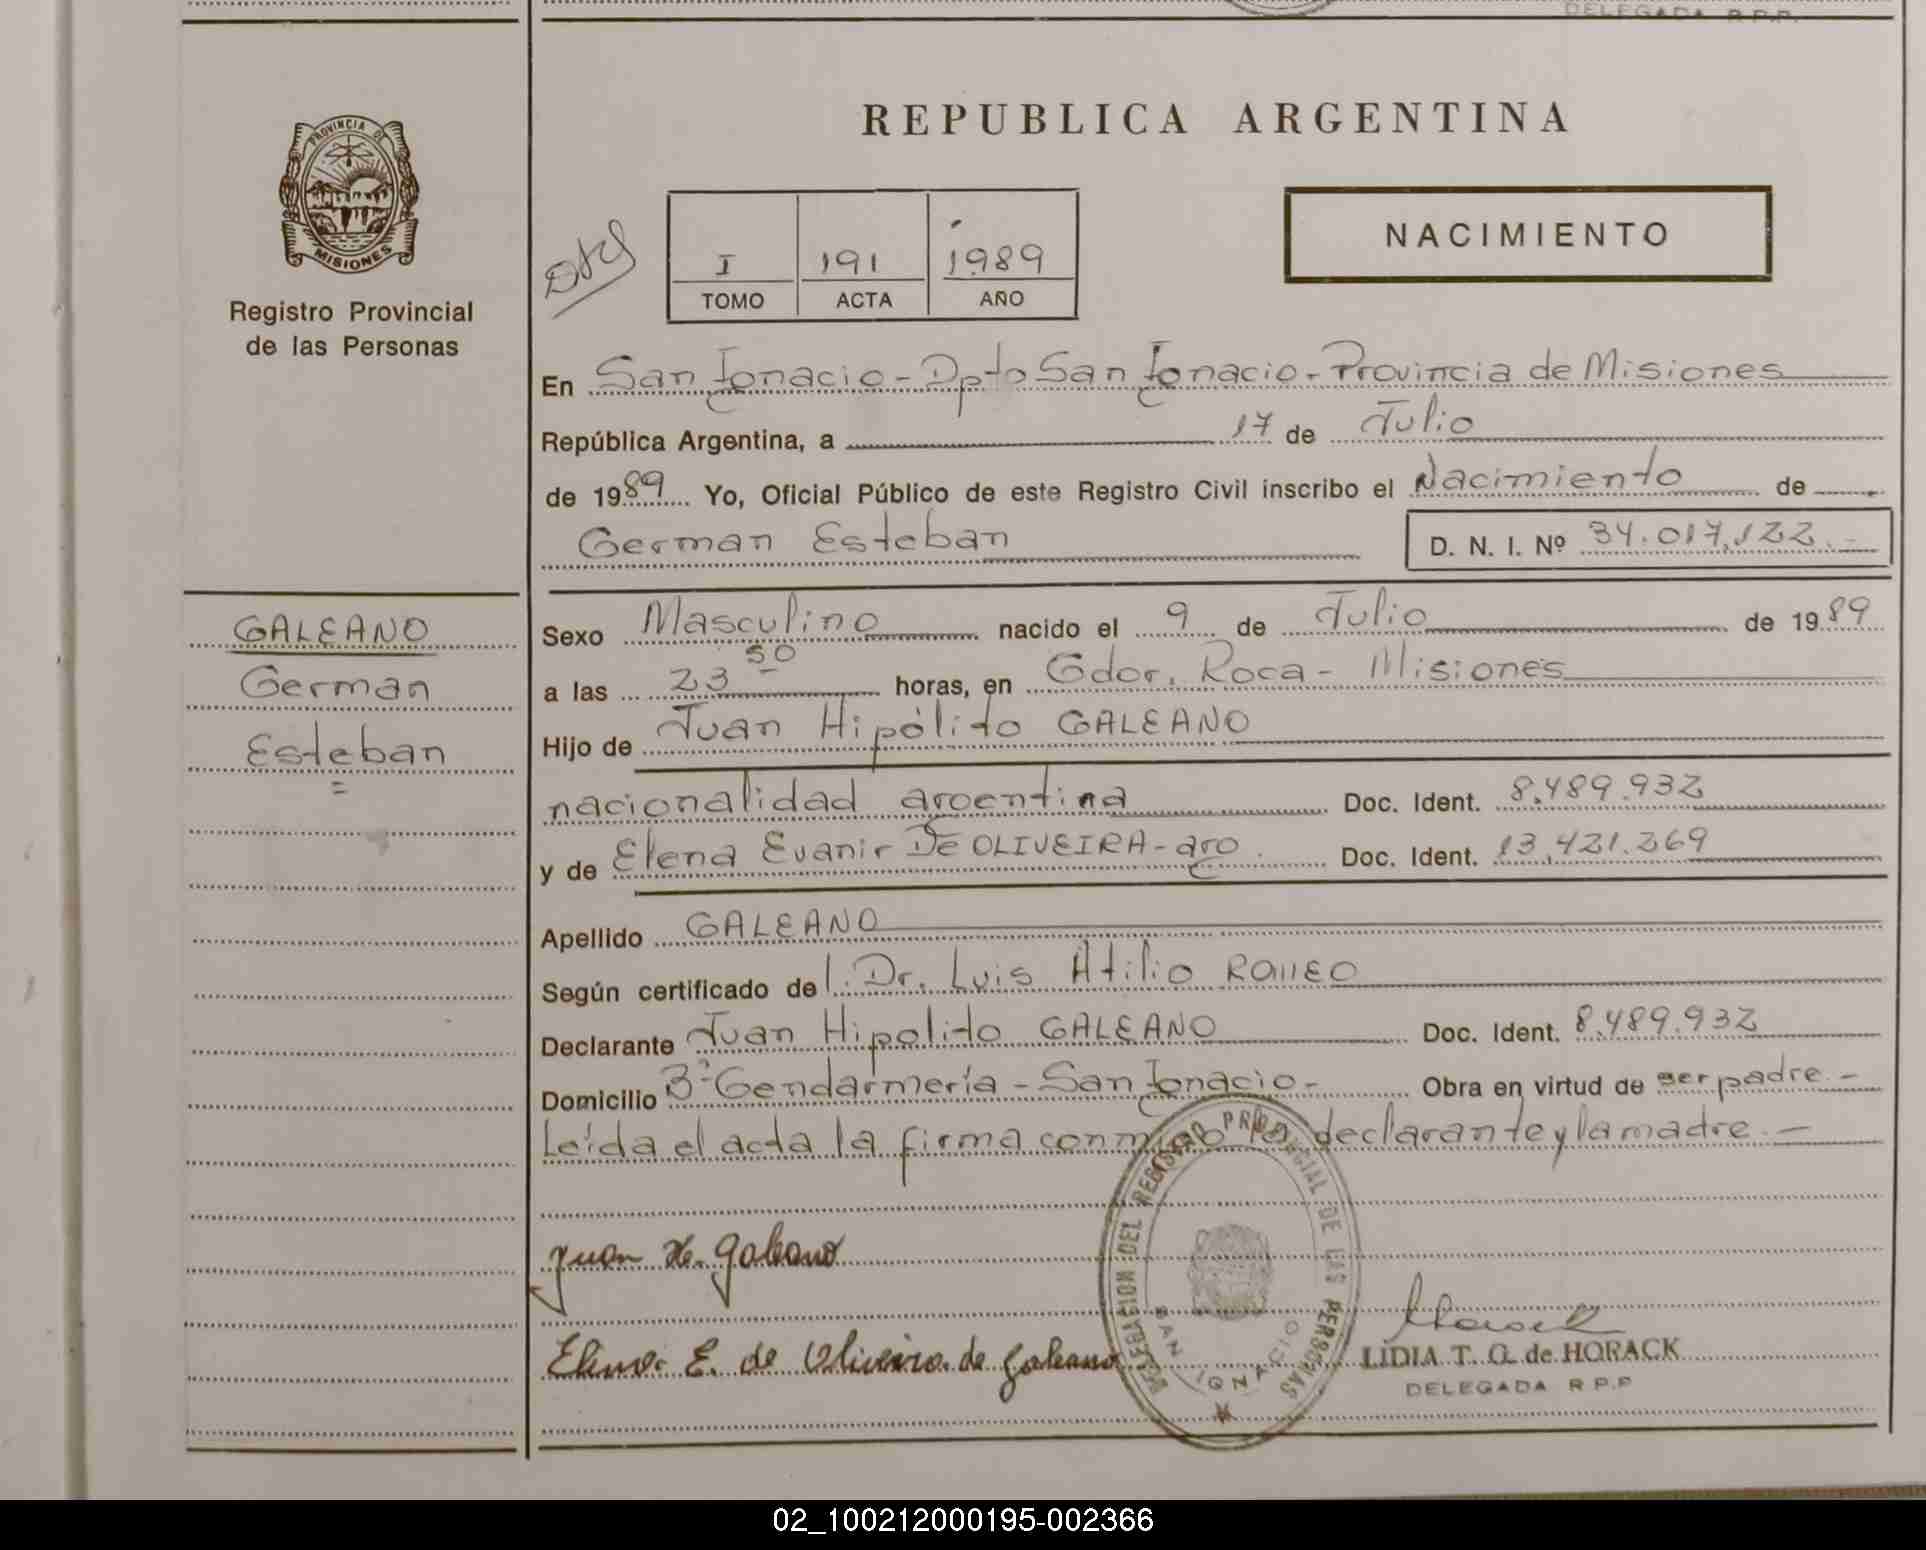 DELEGADA R.P.P.
PROVINCIA DE
MISIONES
Registro Provincial
de las Personas
REPUBLICA ARGENTINA
NACIMIENTO
I 191 1989
TOMO ACTA AÑO
En San Ignacio - Dpto San Ignacio - Provincia de Misiones
República Argentina, a 17 de Julio
de 1989 Yo, Oficial Público de este Registro Civil inscribo el Nacimiento de
German Esteban D. N. I. Nº 34.017.122.-
GALEANO
German
Esteban
Sexo Masculino nacido el 9 de Julio de 1989
a las 23 50 horas, en Gdor. Roca - Misiones
Hijo de Juan Hipólito GALEANO
nacionalidad argentina Doc. Ident. 8.489.932
y de Elena Evanir De OLIVEIRA - arg. Doc. Ident. 13.421.269
Apellido GALEANO
Según certificado del Dr. Luis Atilio
Declarante Juan Hipolito GALEANO Doc. Ident. 8.489.932
Domicilio Bº Gendarmería - San Ignacio - Obra en virtud de ser padre.-
Leída el acta la firma conmigo el declarante y la madre.-
Juan H. Galeano
Elena E. de Oliveira de Galeano
DELEGACION DEL REGISTRO PROVINCIAL DE LAS PERSONAS
SAN IGNACIO
LIDIA T. G. de HORACK
DELEGADA R.P.P
02_100212000195-002366